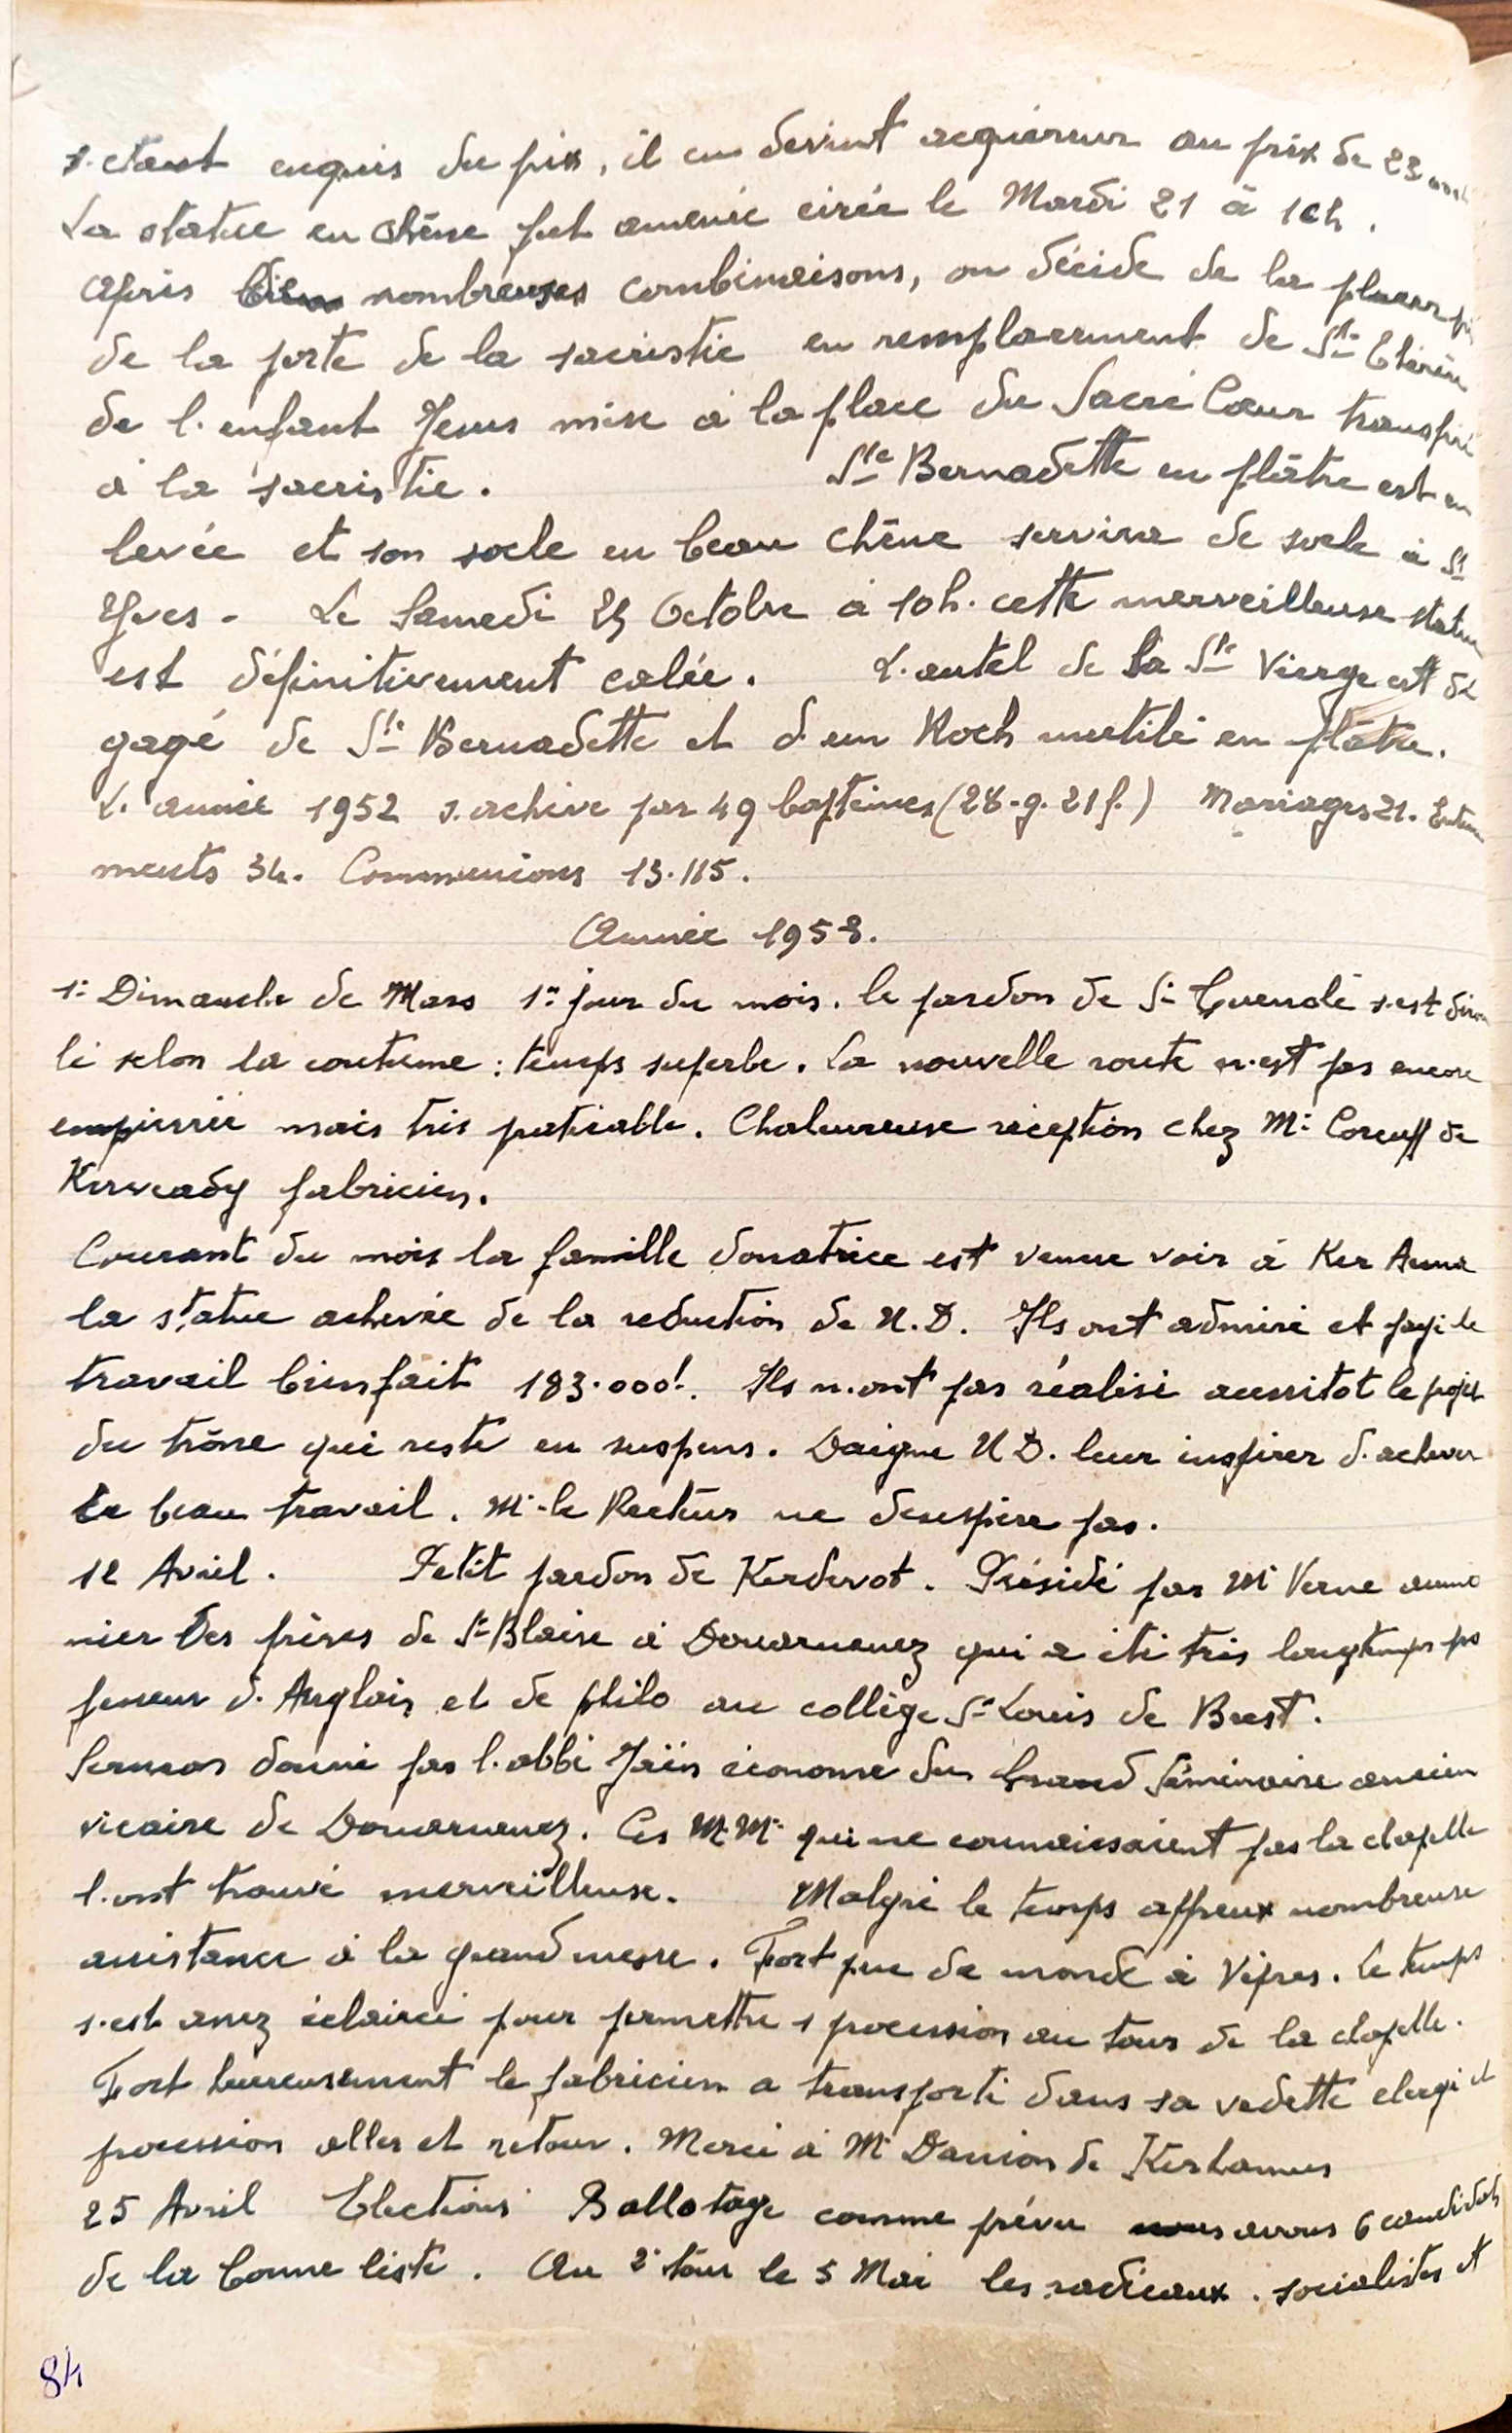 s'étant enquis du prix, il en devint acquéreur au prix de 23
La statue en chêne fut amenée cirée le Mardi 21 à 10h.
Après bien nombreuses combinaisons, on décide de la placer
de la porte de la sacristie en remplacement de Ste Thérèse
de l'enfant Jesus mise à la place du Sacré Cœur transféré
à la sacristie. Ste Bernadette en plâtre est en
levée et son socle en beau chêne servira de socle à St
Yves - Le Samedi 25 Octobre à 10h. cette merveilleuse statue
est définitivement calée. L'autel de la Ste Vierge est dé
gagé de Ste Bernadette et d'un Roch mutilé en plâtre.
L'année 1952 s'achève par 49 baptêmes (28.g. 21 f.) Mariages 21. Enterre
ments 34. Communions 13.115.
Année 1953.
1er Dimanche de Mars 1er jour du mois. le pardon de St Guénolé s'est dérou
lé selon la coutume : temps superbe. La nouvelle route n'est pas encore
empierrée mais très praticable. Chaleureuse réception chez Mr Coreuff de
Kerveady fabricien.
Courant du mois la famille donatrice est venue voir à Ker Anna
la statue achevée de la reduction de N.D. Ils ont admiré et payé le
travail bien fait 183.000f. Ils n'ont pas réalisé aussitot le projet
du trône qui reste en suspens. Daigne N.D. leur inspirer d'achever
le beau travail. Mr le Recteur ne desespère pas.
12 Avril. Petit pardon de Kerdevot. Présidé par Mr Verne aumo
nier des frères de St Blaise à Douarnenez qui a été très longtemps pro
fesseur d'Anglais et de philo au collège St Louis de Brest.
Sermon donné par l'abbé Jaïn économe du Grand Séminaire ancien
vicaire de Douarnenez. Ces M.Mrs qui ne connaissaient pas la chapelle
l'ont trouvé merveilleuse. Malgré le temps affreux nombreuse
assistance à la grand messe. Fort peu de monde à Vêpres. Le temps
s'est assez éclairci pour permettre 1 procession au tour de la chapelle.
Fort heureusement le fabricien a transporté dans sa vedette clergé et
procession aller et retour. Merci à Mr Danion de
25 Avril Elections Ballotage comme prévu nous avons 6 candidats
de la bonne liste. Au 2e tour le 5 Mai les radicaux. socialistes et
84